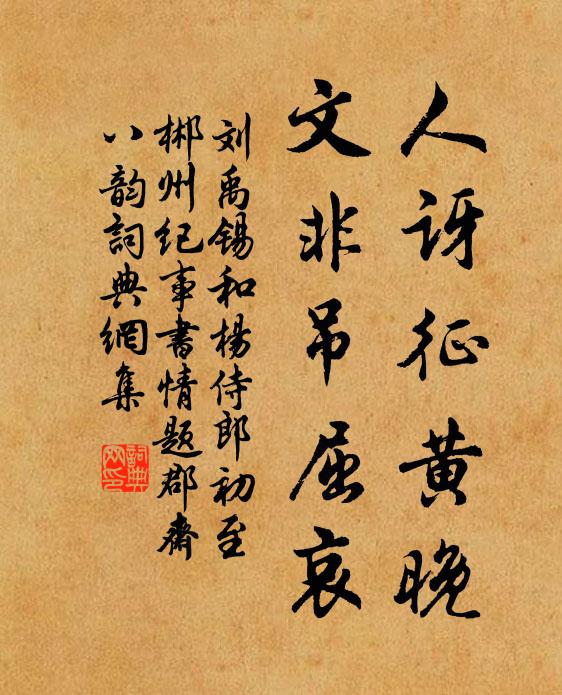 人讶征黄晚
文非吊屈哀
刘禹锡和杨侍郎初至
郴州纪事书情题郡斋
八韵詞典網集
詞典
网印